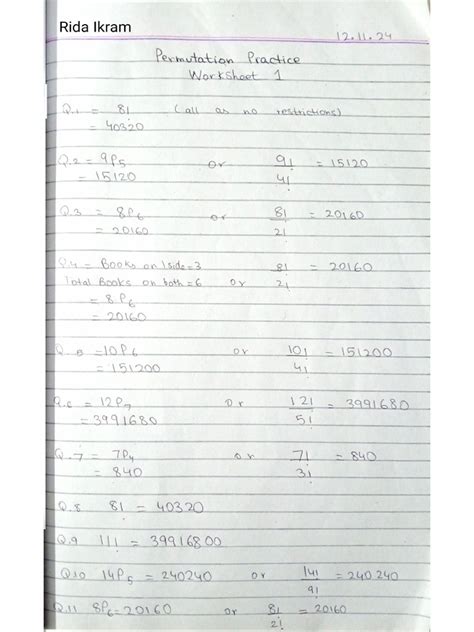 Rida Ikram
12.11.24
Permutation Practice
Worksheet 1
Q.1 = 8! (all as no restrictions)
= 40320
Q.2 = 9P5 or 9!/4! = 15120
= 15120
Q.3 = 8P6 or 8!/2! = 20160
= 20160
Q.4 = Books on 1 side = 3 8!/2! = 20160
Total Books on both = 6 or
= 8P6
= 20160
Q.5 = 10P6 or 10!/4! = 151200
= 151200
Q.6 = 12P7 or 12!/5! = 3991680
= 3991680
Q.7 = 7P4 or 7!/3! = 840
= 840
Q.8 8! = 40320
Q.9 11! = 39916800
Q.10 14P5 = 240240 or 14!/9! = 240240
Q.11 8P6 = 20160 or 8!/2! = 20160